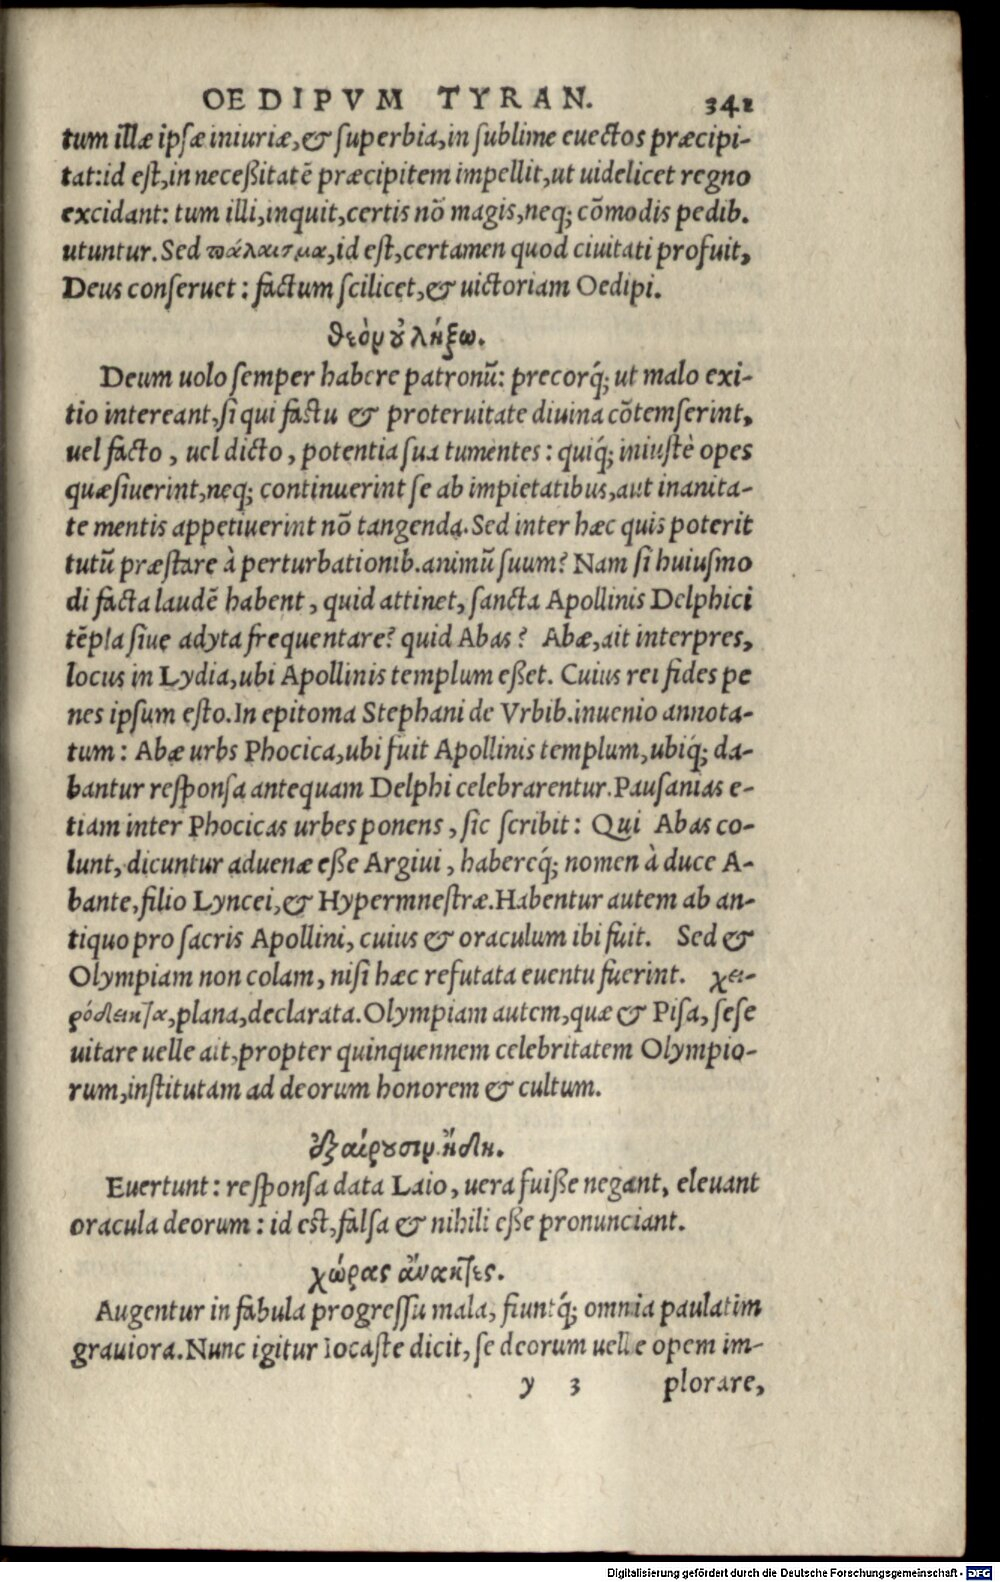 OEDIPVM TYRAN. 341
tum illæ ipsæ iniuriæ,& superbia,in sublime euectos præcipi-
tat:id est,in neceßitatē præcipitem impellit,ut uidelicet regno
excidant: tum illi,inquit,certis nō magis,neq; cōmodis pedib.
utuntur. Sed πάλαισμα,id est,certamen quod ciuitati profuit,
Deus conseruet: factum scilicet,& uictoriam Oedipi.
θεὸν οὐ λήξω.
Deum uolo semper habere patronū: precorq́; ut malo exi-
tio intereant,si qui factu & proteruitate diuina cōtemserint,
uel facto, uel dicto, potentia sua tumentes: quiq́; iniustè opes
quæsiuerint,neq; continuerint se ab impietatibus,aut inanita-
te mentis appetiuerint nō tangenda. Sed inter hæc quis poterit
tutū præstare à perturbationib.animū suum? Nam si huiusmo
di facta laudē habent, quid attinet, sancta Apollinis Delphici
tēpla siue adyta frequentare? quid Abas? Abæ,ait interpres,
locus in Lydia,ubi Apollinis templum eßet. Cuius rei fides pe
nes ipsum esto. In epitoma Stephani de Vrbib.inuenio annota-
tum: Abæ urbs Phocica,ubi fuit Apollinis templum,ubiq́; da-
bantur responsa antequam Delphi celebrarentur. Pausanias e-
tiam inter Phocicas urbes ponens, sic scribit: Qui Abas co-
lunt, dicuntur aduenæ eße Argiui, habereq́; nomen à duce A-
bante, filio Lyncei,& Hypermnestræ. Habentur autem ab an-
tiquo pro sacris Apollini, cuius & oraculum ibi fuit. Sed &
Olympiam non colam, nisi hæc refutata euentu fuerint. χει-
ρόδεικτα,plana,declarata. Olympiam autem,quæ & Pisa, sese
uitare uelle ait,propter quinquennem celebritatem Olympio-
rum,institutam ad deorum honorem & cultum.
ἐξαίρουσιν ἤδη.
Euertunt: responsa data Laio, uera fuiße negant, eleuant
oracula deorum: id est,falsa & nihili eße pronunciant.
χώρας ἄνακτες.
Augentur in fabula progressu mala, fiuntq́; omnia paulatim
grauiora. Nunc igitur Iocaste dicit, se deorum uelle opem im-
y 3 plorare,
Digitalisierung gefördert durch die Deutsche Forschungsgemeinschaft - DFG